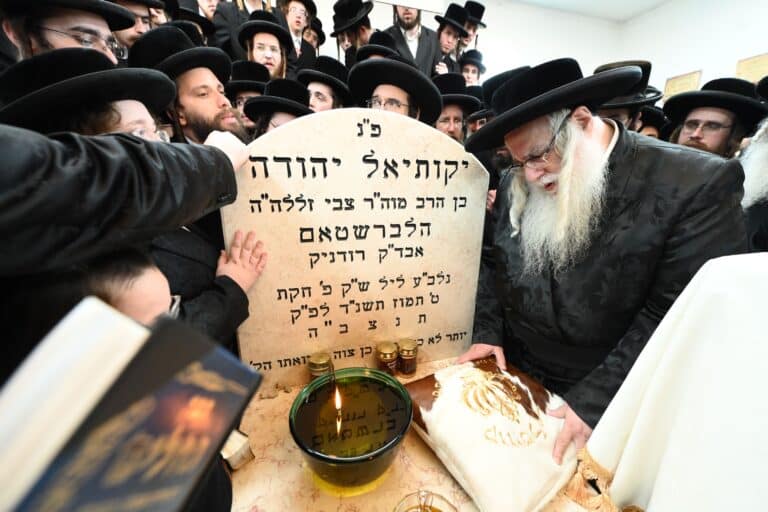 פ"נ
יקותיאל יהודה
בן הרב מוה"ר צבי זללה"ה
הלברשטאם
אבד"ק רודניק
נלב"ע ליל ש"ק פ' חקת
ט' תמוז תשנ"ד לפ"ק
ת נ צ ב "ה
יותר לא כ
כן צוה
תהלים